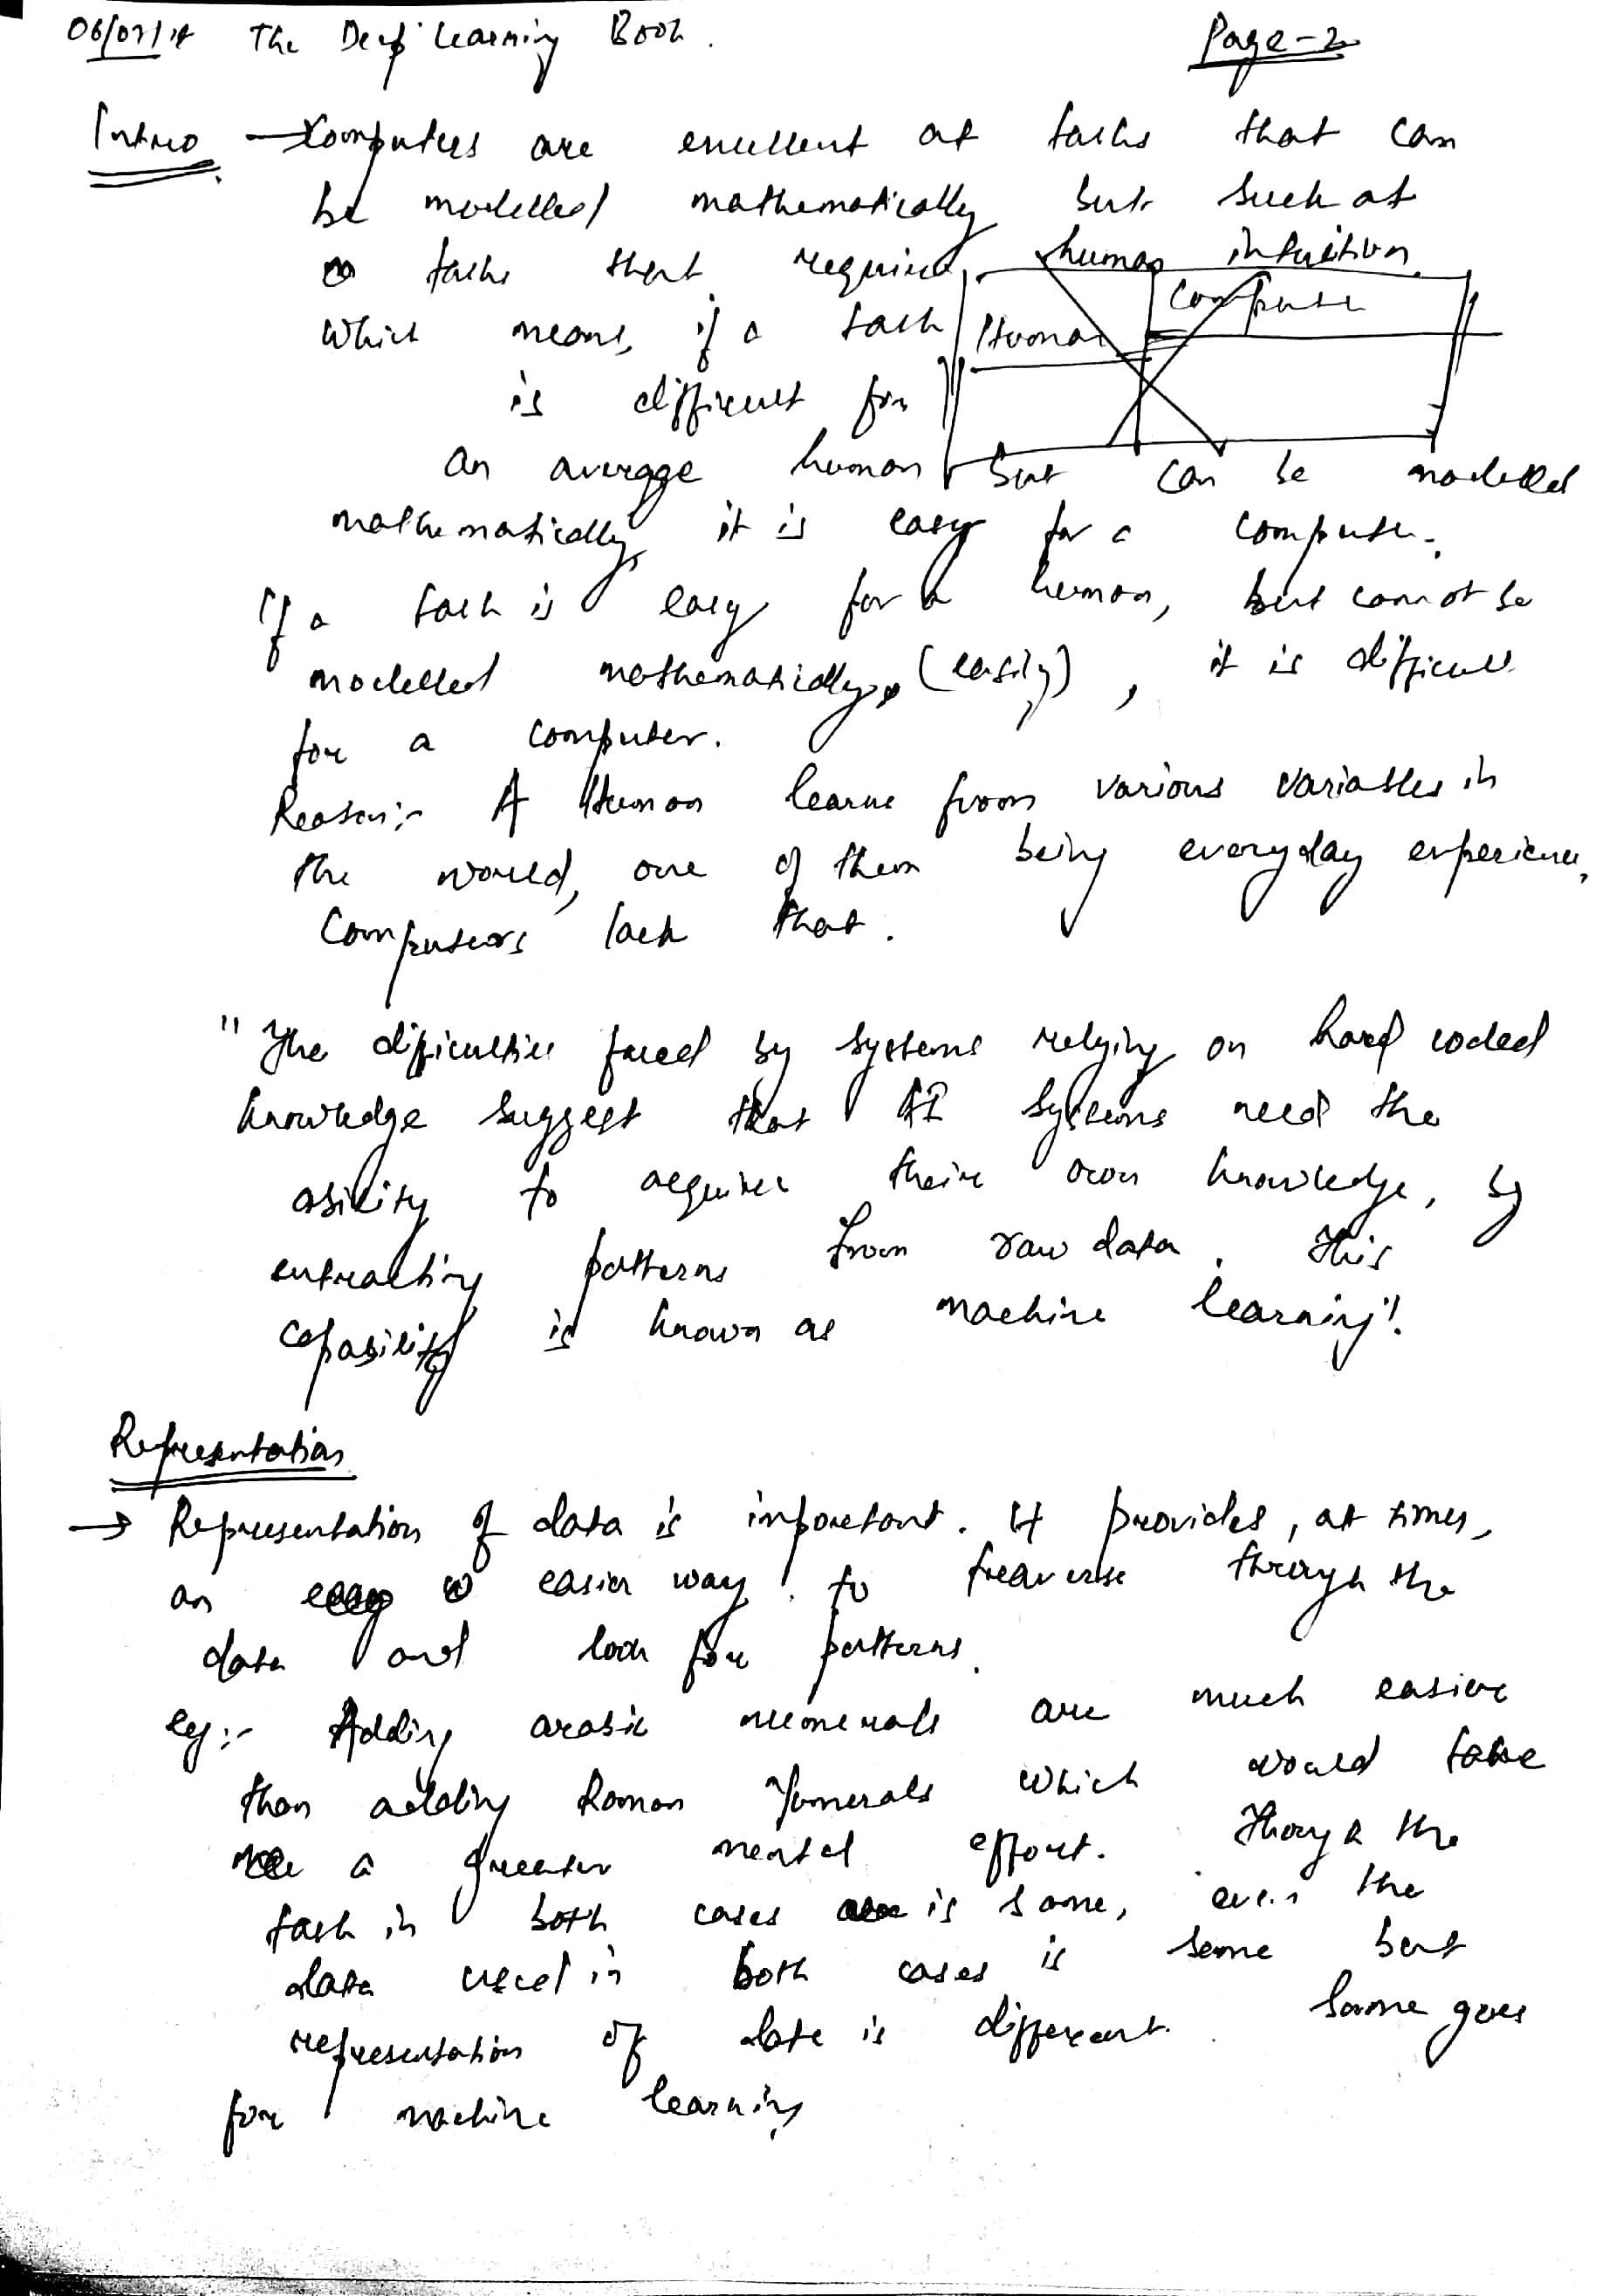 The Deep Learning Book.
Page-2
Intro → Computers are excellent at tasks that can
be modelled mathematically but suck at
tasks that require human intuition.
Which means, if a task
Human Computer
is difficult for
an average human but can be modelled
mathematically, it is easy for a computer.
If a task is easy for a human, but cannot be
modelled mathematically, (easily), it is difficult
for a computer.
Reason:- A Human learns from various variables in
the world, one of them being everyday experience,
Computers lack that.
"The difficulties faced by systems relying on hard coded
knowledge suggest that AI systems need the
ability to acquire their own knowledge, by
extracting patterns from raw data. This
capability is known as machine learning".
Representation
→ Representation of data is important. It provides, at times,
an easier way to traverse through the
data and look for patterns.
eg:- Adding arabic numerals are much easier
than adding Roman Numerals which would take
a greater mental effort. Though the
task in both cases is same, even the
data used in both cases is same but
representation of data is different. Same goes
for machine learning